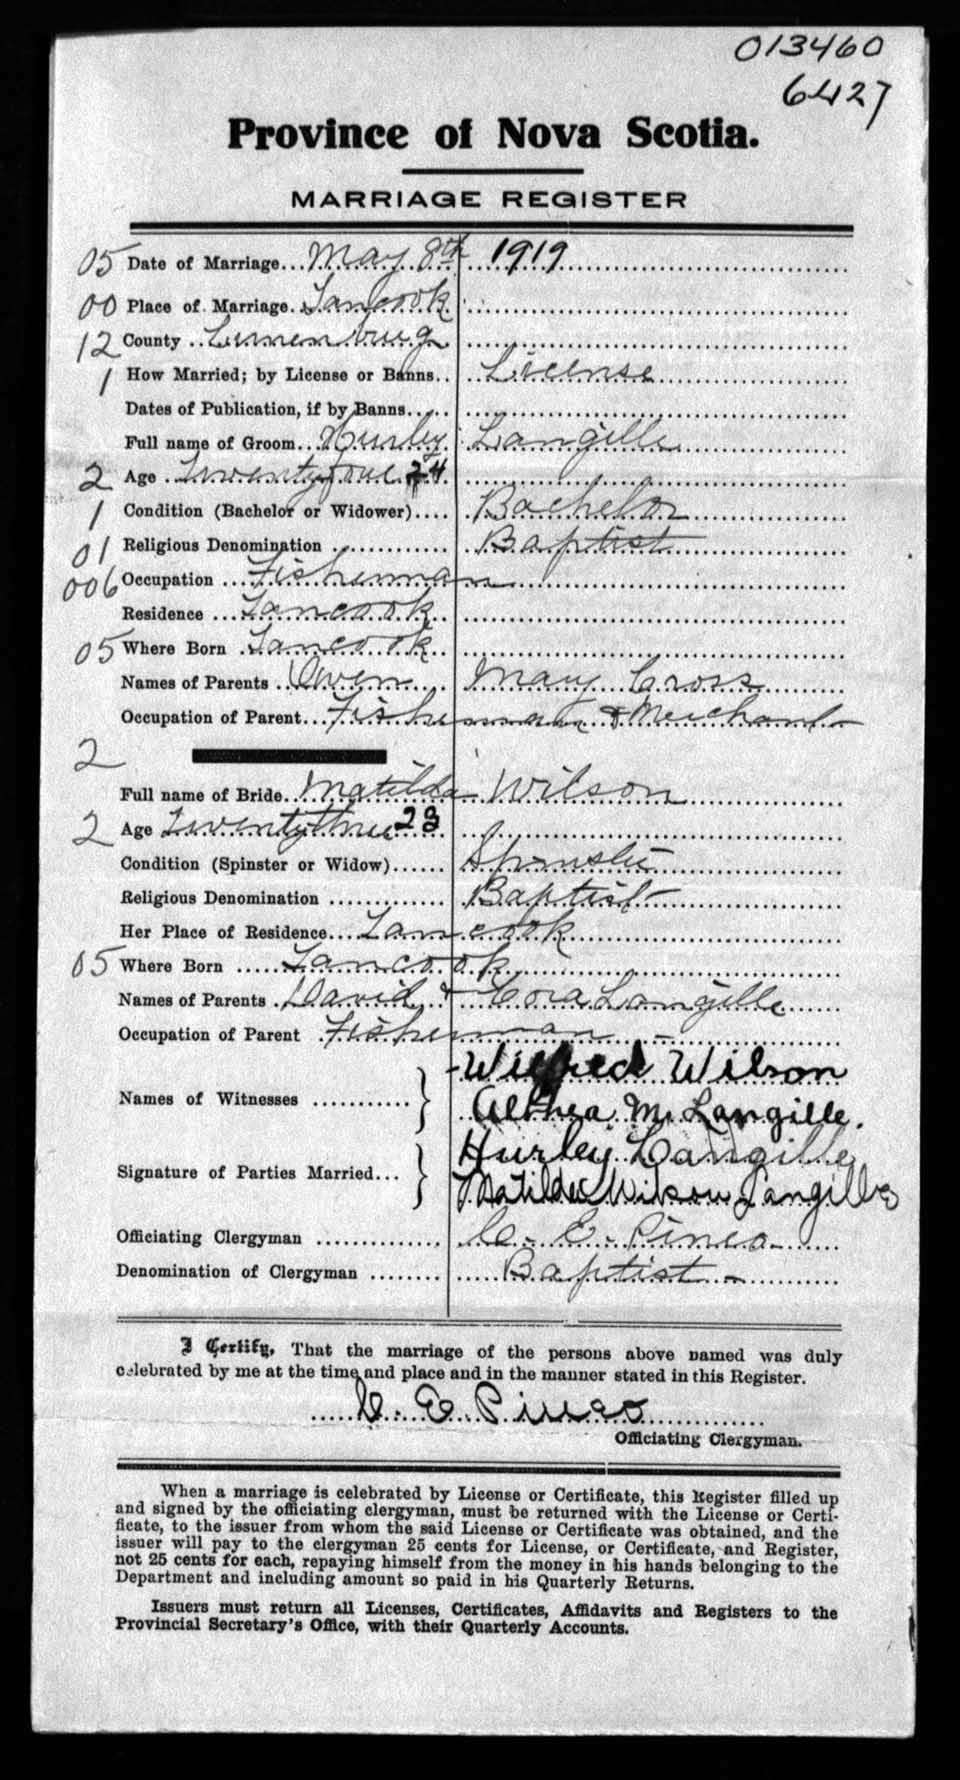 013460
6427
Province of Nova Scotia.
MARRIAGE REGISTER
05 Date of Marriage... May 8th 1919
00 Place of Marriage.. Tancook
12 County .. Lunenburg
1 How Married; by License or Banns.. License
Dates of Publication, if by Banns.....
Full name of Groom... Hurley Langille
2 Age . Twentyfour 24
1 Condition (Bachelor or Widower).... Bachelor
01 Religious Denomination ............. Baptist
006 Occupation ... Fisherman
Residence ... Tancook
05 Where Born . Tancook
Names of Parents .. Owen Mary Cross
Occupation of Parent... Fisherman & Merchant
2
Full name of Bride.. Matilda Wilson
2 Age Twentythree 23
Condition (Spinster or Widow)...... Spinster
Religious Denomination ............. Baptist
Her Place of Residence... Tancook
05 Where Born ..... Tancook
Names of Parents . David & Cora Langille
Occupation of Parent Fisherman -
Wilfred Wilson
Names of Witnesses ...........
Althea M. Langille.
Hurley Langille
Signature of Parties Married...
Matilda Wilson Langille
Officiating Clergyman .............. C. E. Pineo
Denomination of Clergyman ........ Baptist -
I Certify, That the marriage of the persons above named was duly
celebrated by me at the time and place and in the manner stated in this Register.
C. E. Pineo
Officiating Clergyman.
When a marriage is celebrated by License or Certificate, this Register filled up
and signed by the officiating clergyman, must be returned with the License or Certi-
ficate, to the issuer from whom the said License or Certificate was obtained, and the
issuer will pay to the clergyman 25 cents for License, or Certificate, and Register,
not 25 cents for each, repaying himself from the money in his hands belonging to the
Department and including amount so paid in his Quarterly Returns.
Issuers must return all Licenses, Certificates, Affidavits and Registers to the
Provincial Secretary's Office, with their Quarterly Accounts.